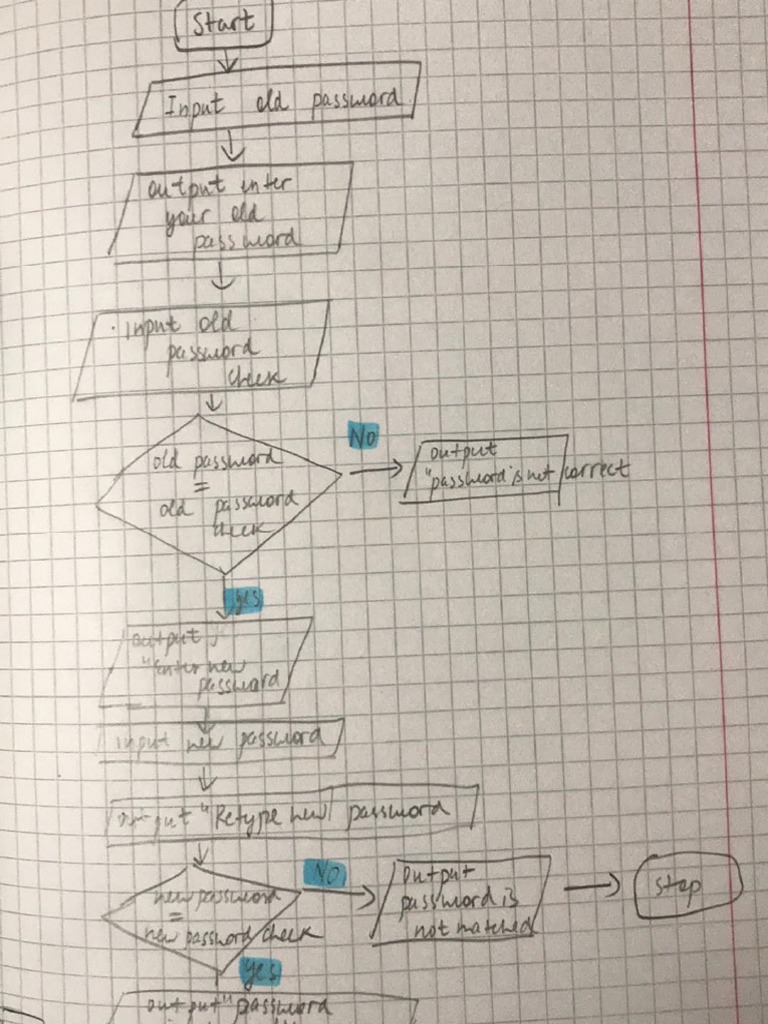 Start
Input old password
output enter
your old
password
Input old
password
check
No
old password
=
old password
check
output
"password is not correct
yes
output
"Enter new
password
input new password
output "Retype new password
No
new password
=
new password check
output
password is
not matched
stop
yes
output "password